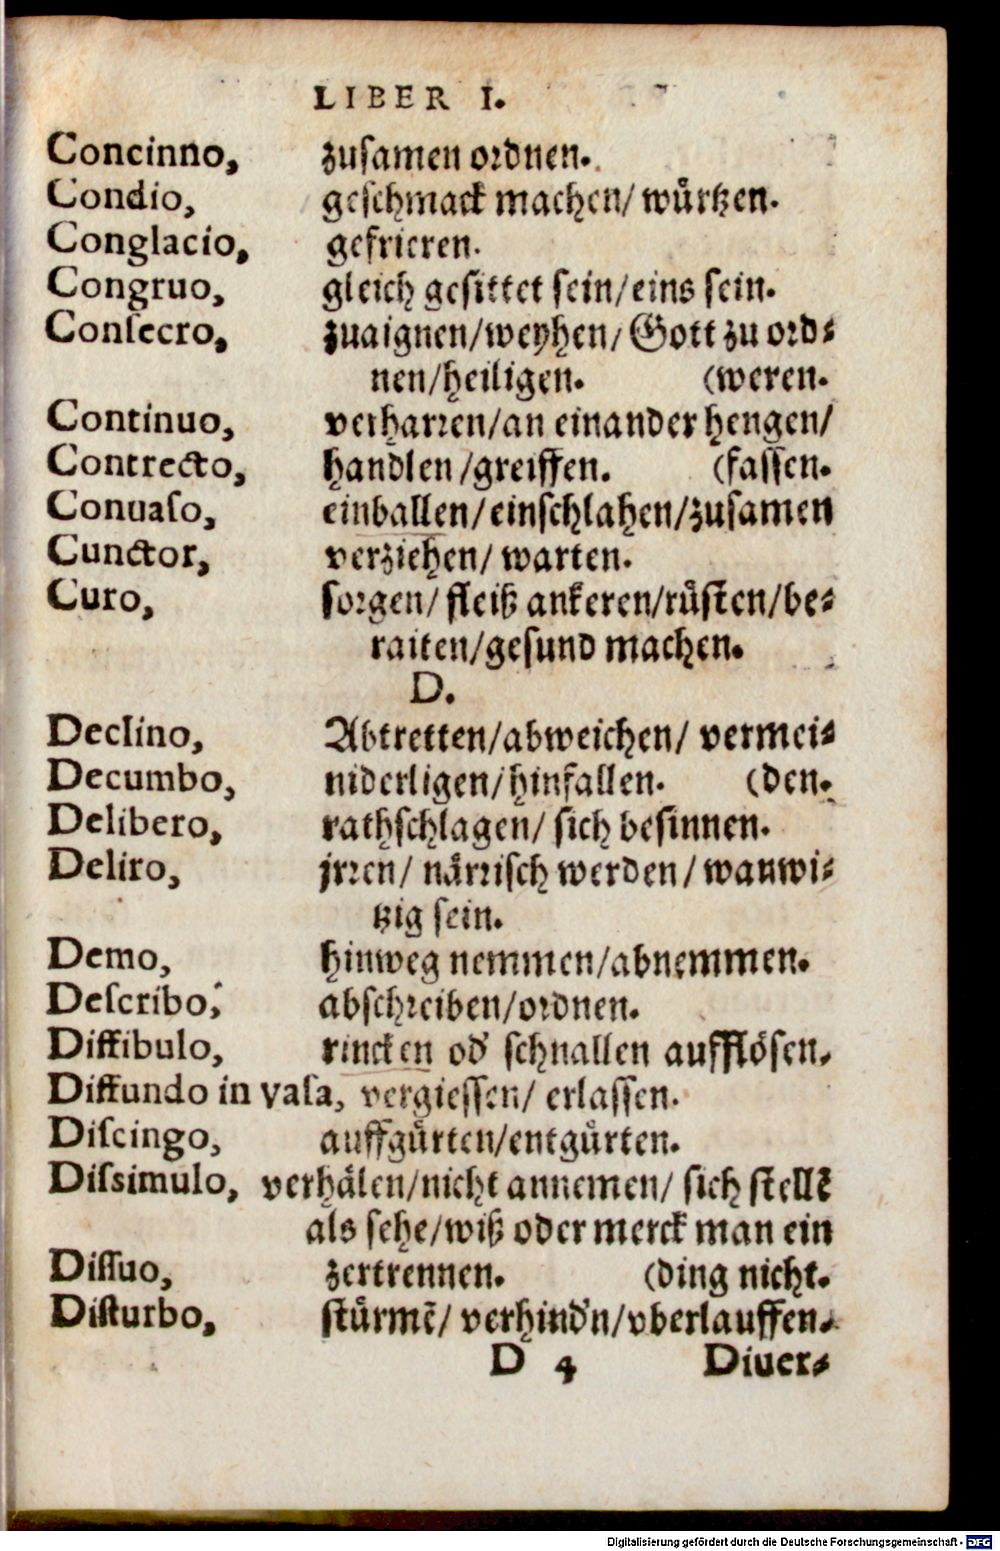 LIBER I.
Concinno, zusamen ordnen.
Condio, geschmack machen/ würtzen.
Conglacio, gefrieren.
Congruo, gleich gesittet sein/eins sein.
Conſecro, zuaignen/weyhen/ Gott zu ord⸗
nen/heiligen. (weren.
Continuo, verharren/an einander hengen/
Contrecto, handlen/greiffen. (fassen.
Conuaſo, einballen/einschlahen/zusamen
Cunctor, verziehen/ warten.
Curo, sorgen/ fleiß ankeren/rüsten/be⸗
raiten/gesund machen.
D.
Declino, Abtretten/abweichen/ vermei⸗
Decumbo, niderligen/hinfallen. (den.
Delibero, rathschlagen/ sich besinnen.
Deliro, jrren/ närrisch werden/ wanwi⸗
tzig sein.
Demo, hinweg nemmen/abnemmen.
Deſcribo, abschreiben/ordnen.
Diffibulo, rincken od' schnallen aufflösen.
Diffundo in vaſa, vergiessen/ erlassen.
Diſcingo, auffgürten/entgürten.
Diſsimulo, verhälen/nicht annemen/ sich stellē
als sehe/wiß oder merck man ein
Diſſuo, zertrennen. (ding nicht.
Diſturbo, stürmē/ verhind'n/vberlauffen.
D 4 Diuer⸗
Digitalisierung gefördert durch die Deutsche Forschungsgemeinschaft - DFG